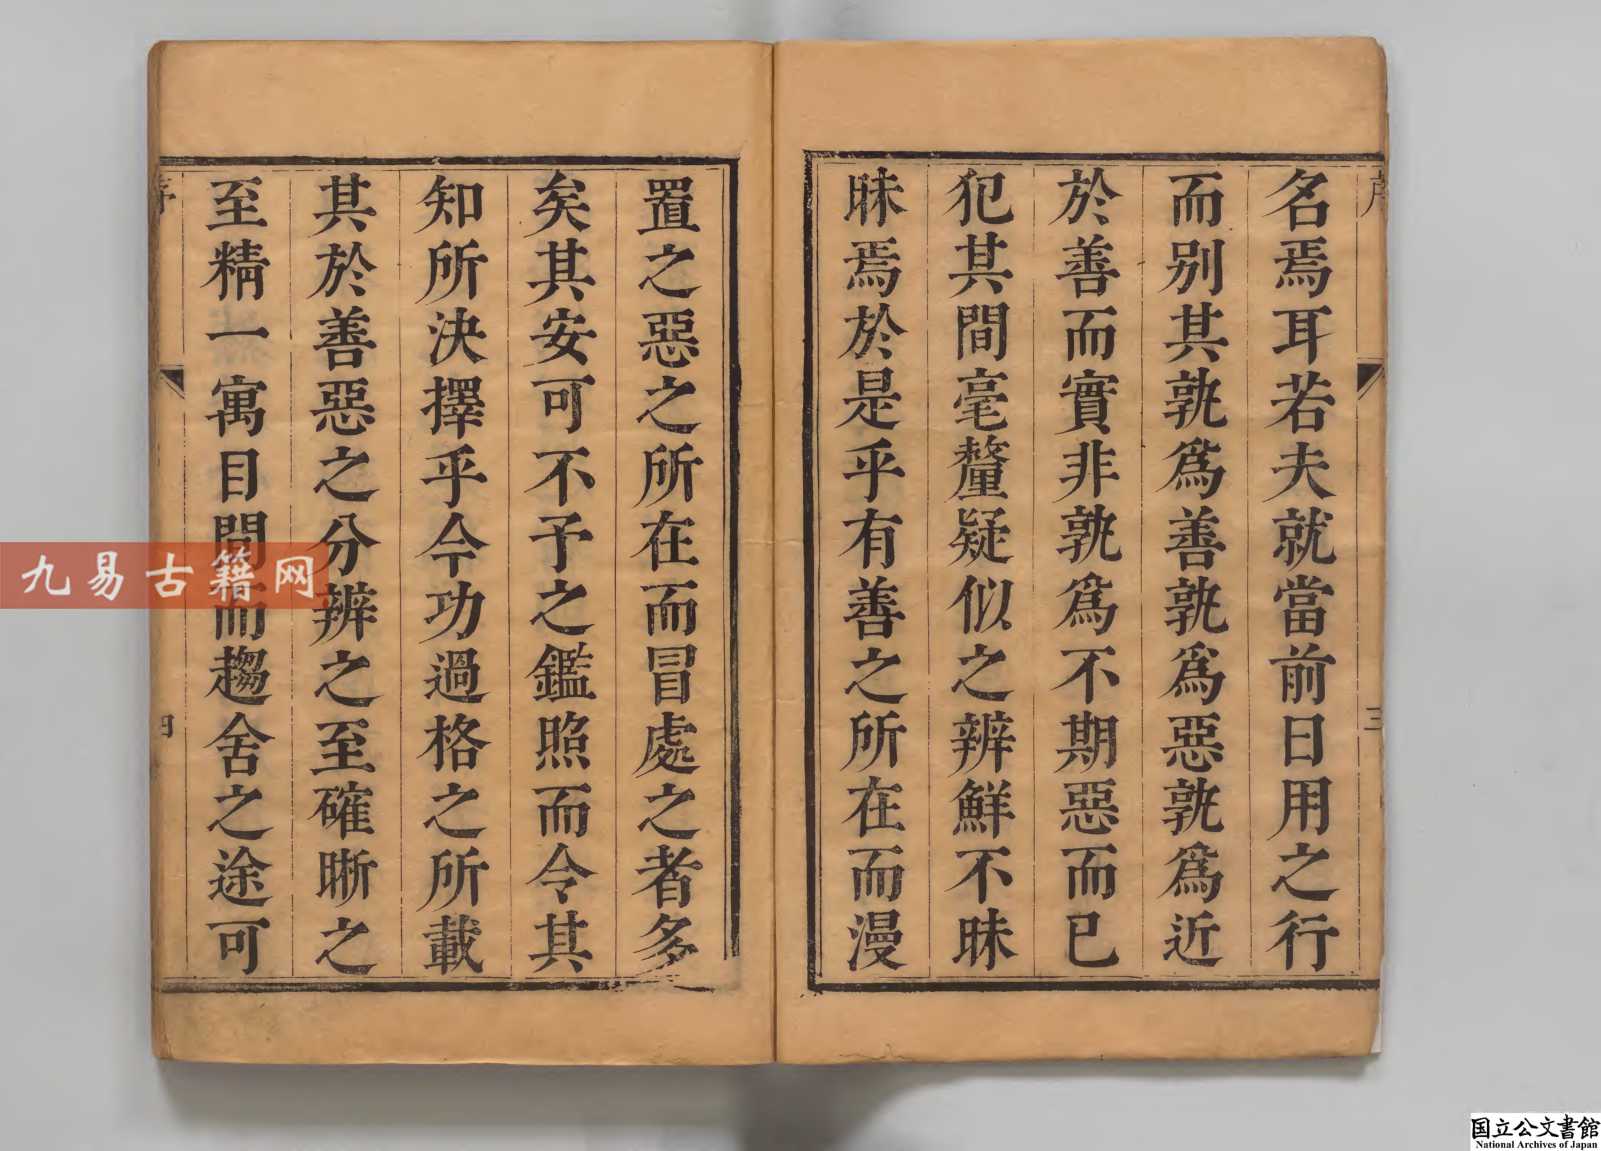 序
三
名焉耳若夫就當前日用之行
而别其孰爲善孰爲惡孰爲近
於善而實非孰爲不期惡而已
犯其間毫釐疑似之辨鮮不昧
昧焉於是乎有善之所在而漫
置之惡之所在而冒處之者多
矣其安可不予之鑑照而令其
知所決擇乎今功過格之所載
其於善惡之分辨之至確晰之
至精一寓目間而趨舍之途可
序
四
九易古籍网
国立公文書館
National Archives of Japan